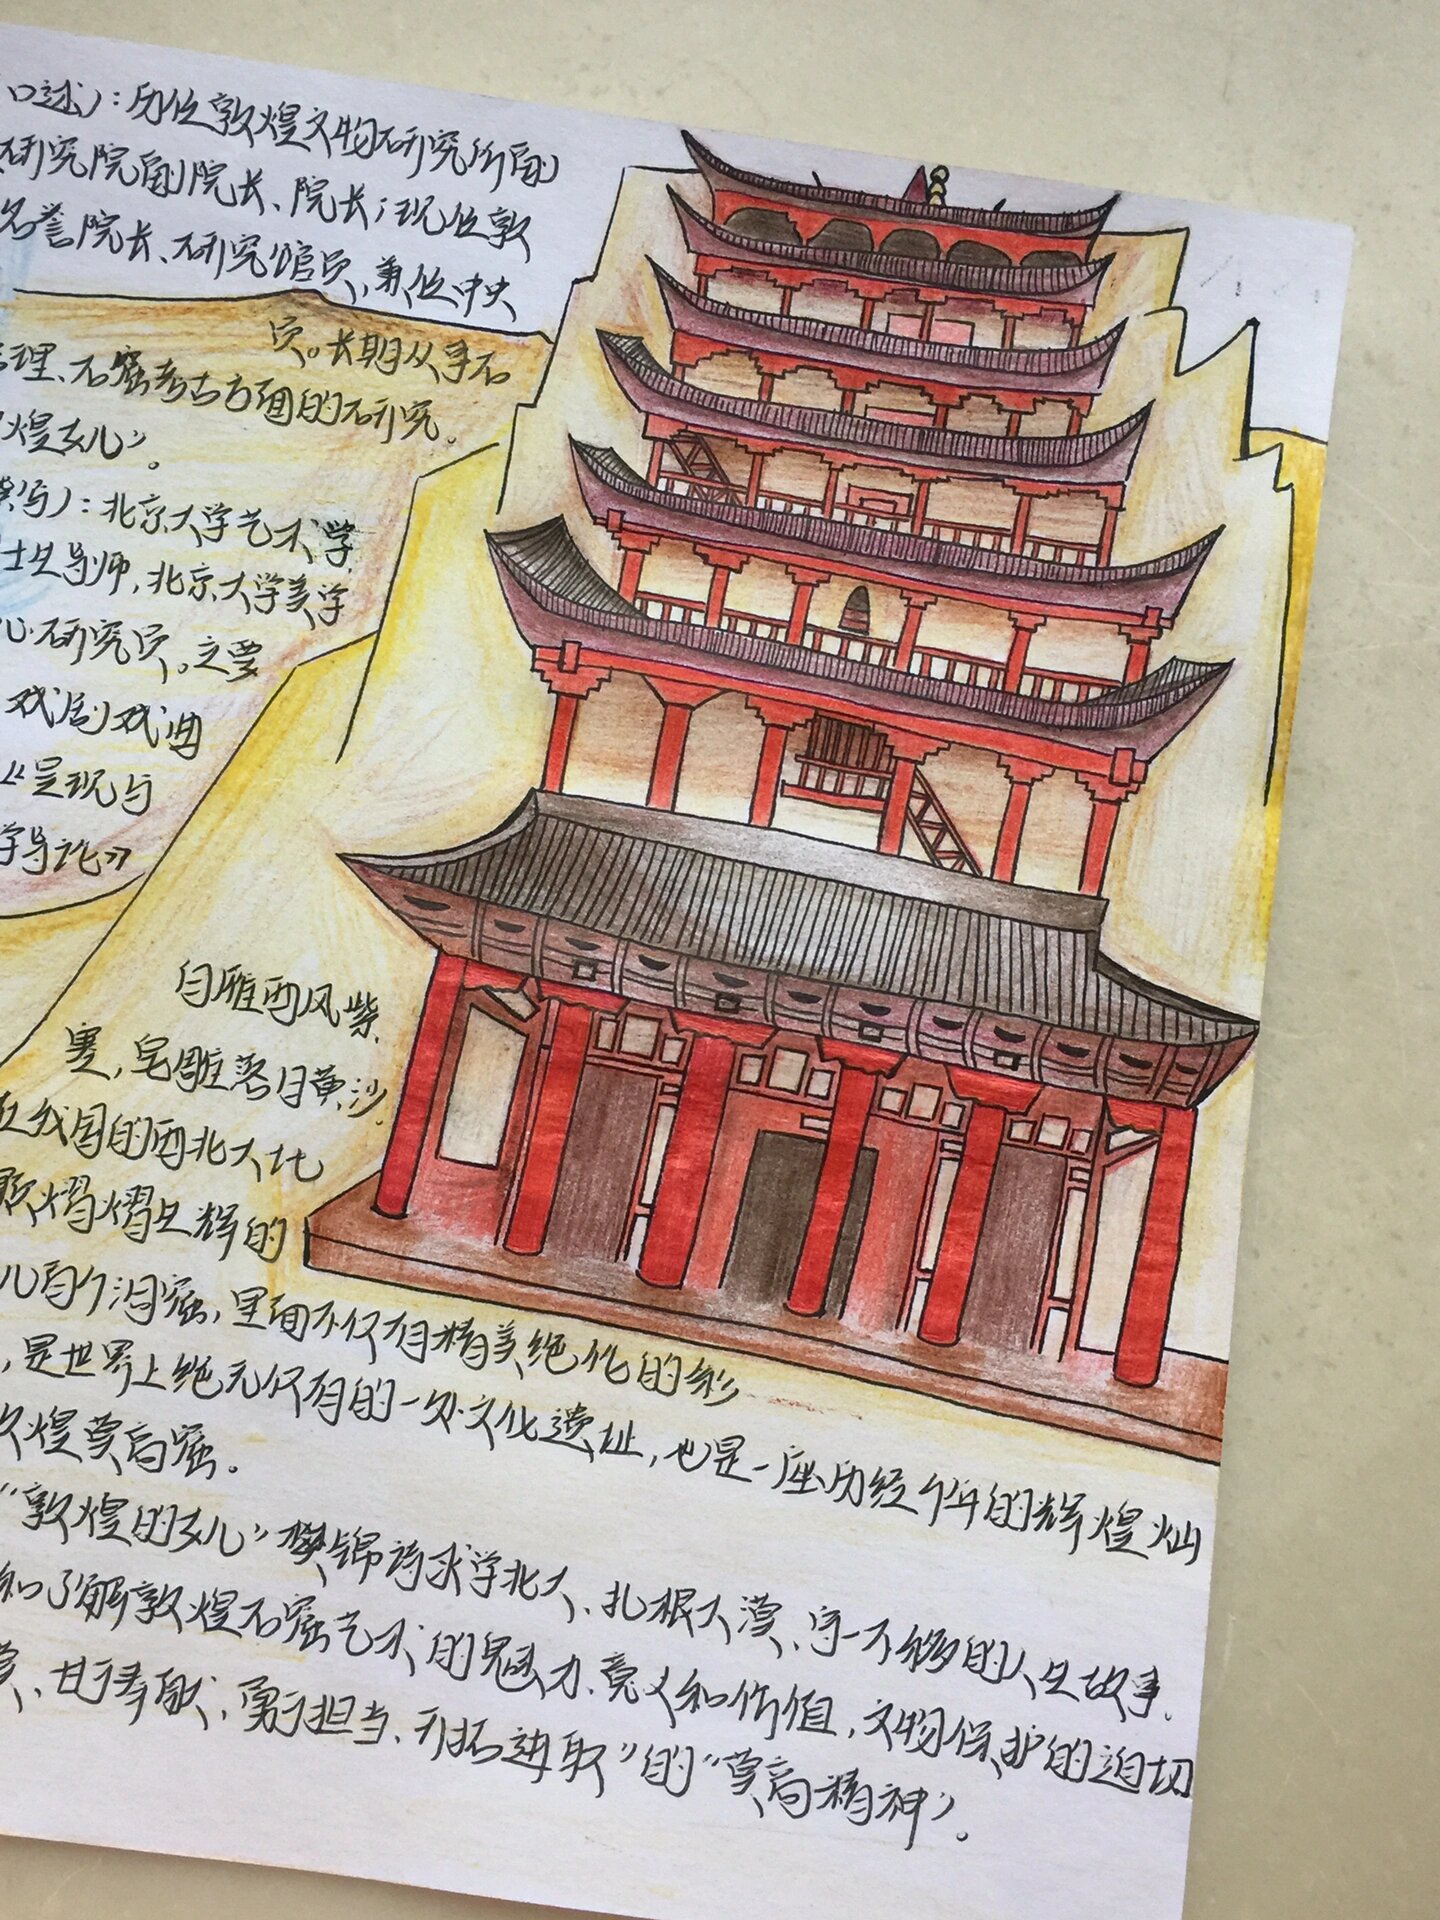 口述）：历任敦煌文物研究所副
研究院副院长、院长；现任敦
名誉院长、研究馆员，兼任中央
员。长期从事石
理、石窟考古方面的研究。
煌女儿”。
写）：北京大学艺术学
士生导师，北京大学美学
心研究员。主要
戏剧戏曲
《呈现与
学导论》
自雁西风紫
塞，皂雕落日黄沙
在我国的西北大地
颗熠熠生辉的
几百个洞窟，里面不仅有精美绝伦的彩
，是世界上绝无仅有的一处文化遗址，也是一座历经千年的辉煌灿
敦煌莫高窟。
“敦煌的女儿”樊锦诗求学北大、扎根大漠、守一不移的人生故事
和了解敦煌石窟艺术的魅力、意义和价值，文物保护的迫切
莫、甘于奉献、勇于担当、开拓进取”的“莫高精神”。